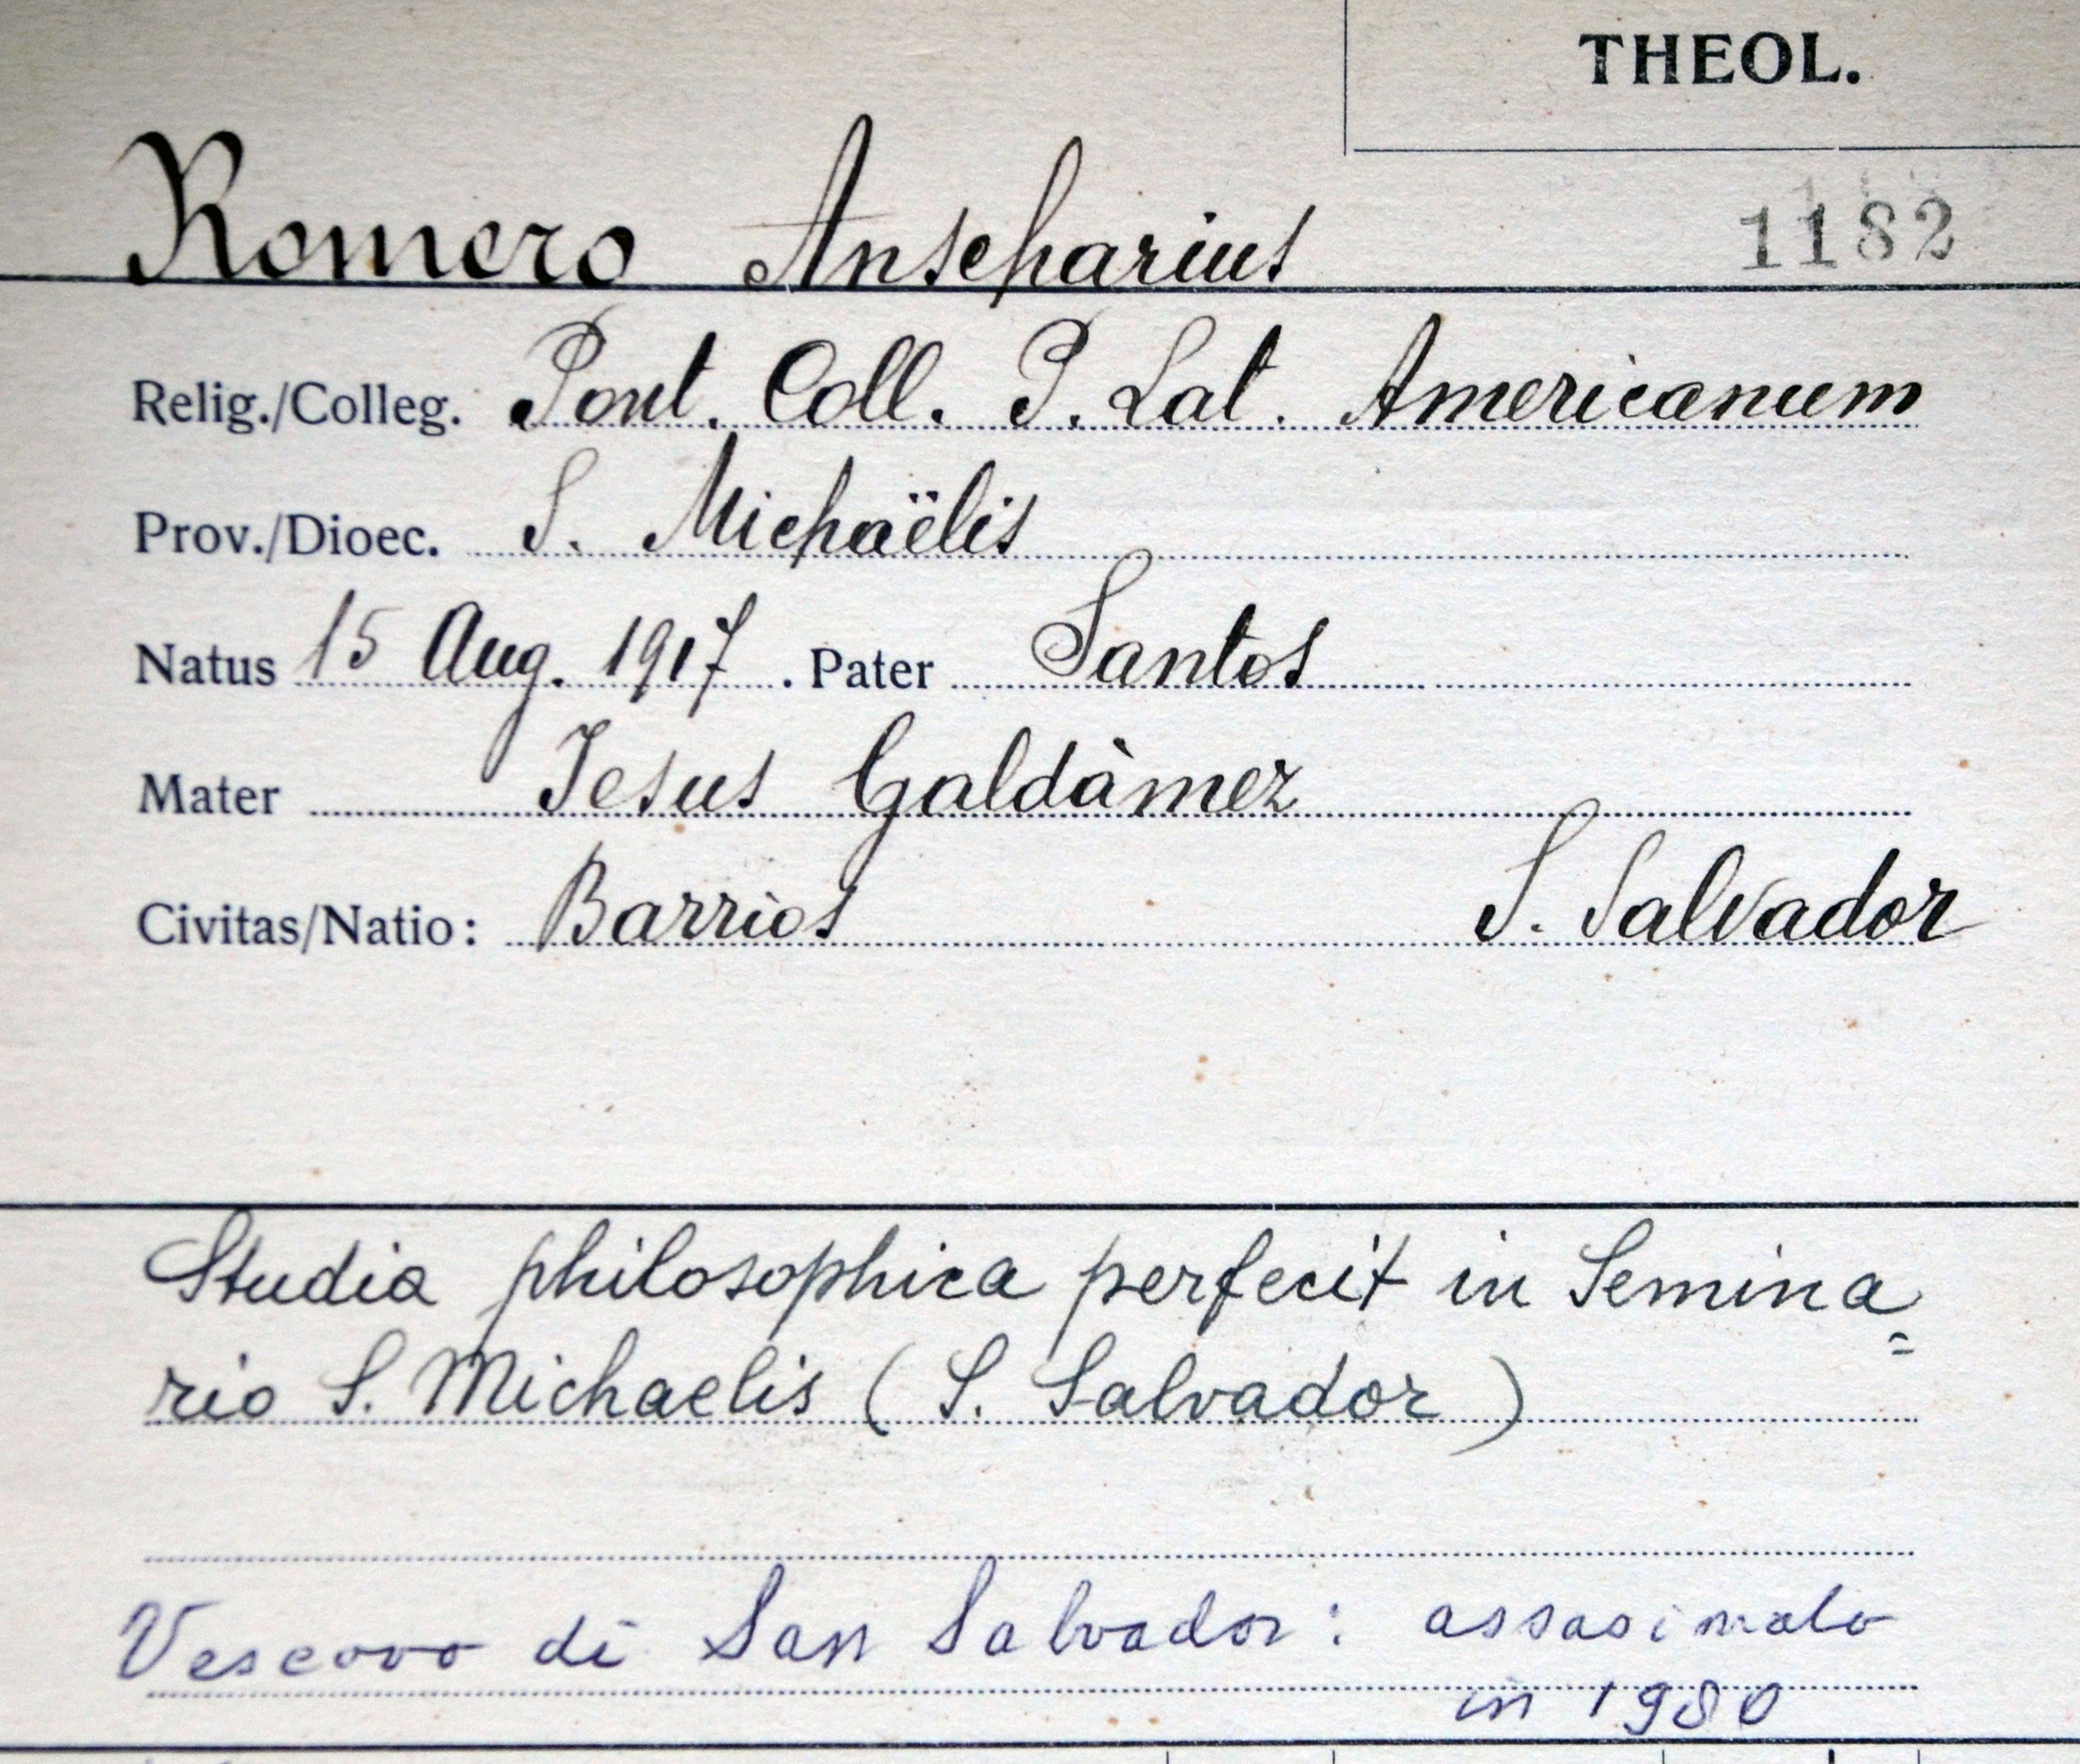 THEOL.
Romero Anscharius 1182
Relig./Colleg. Pont. Coll. P. Lat. Americanum
Prov./Dioec. S. Michaëlis
Natus 15 Aug. 1917. Pater Santos
Mater Jesus Galdàmez
Civitas/Natio: Barrios S. Salvador
Studia philosophica perfecit in Semina=
rio S. Michaelis (S. Salvador)
Vescovo di San Salvador: assasinato
in 1980